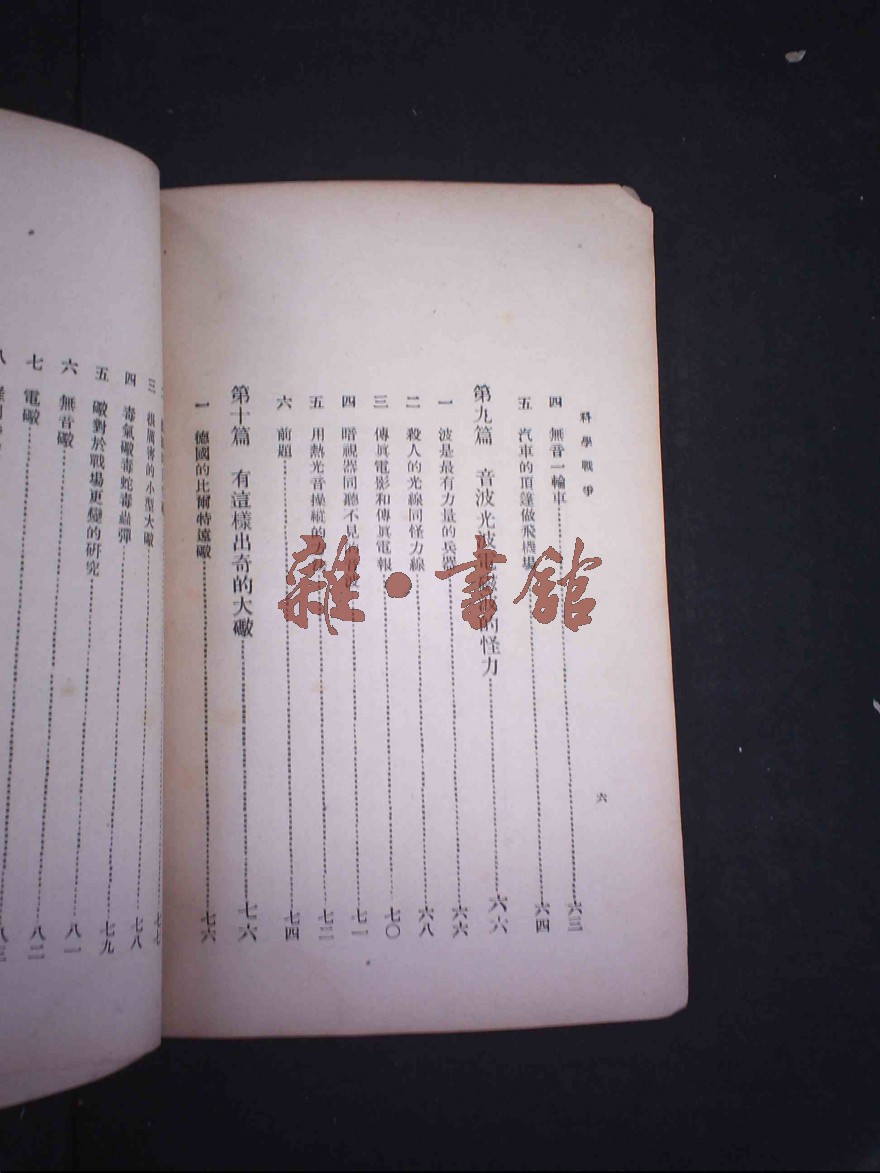 科學戰爭
六
四 無音一輪車 六三
五 汽車的頂篷做飛機場 六四
第九篇 音波光波電磁波的怪力 六六
一 波是最有力量的兵器 六六
二 殺人的光線同怪力線 六八
三 傳眞電影和傳眞電報 七〇
四 暗視器同聽不見 七一
五 用熱光音操縱的 七二
六 前題 七四
第十篇 有這樣出奇的大礮 七六
一 德國的比爾特遠礮 七六
三 很厲害的小型大礮 七七
四 毒氣礮毒蛇毒蟲彈 七八
五 礮對於戰場更變的研究 七九
六 無音礮 八一
七 電礮 八二
八 八三
雜·書館